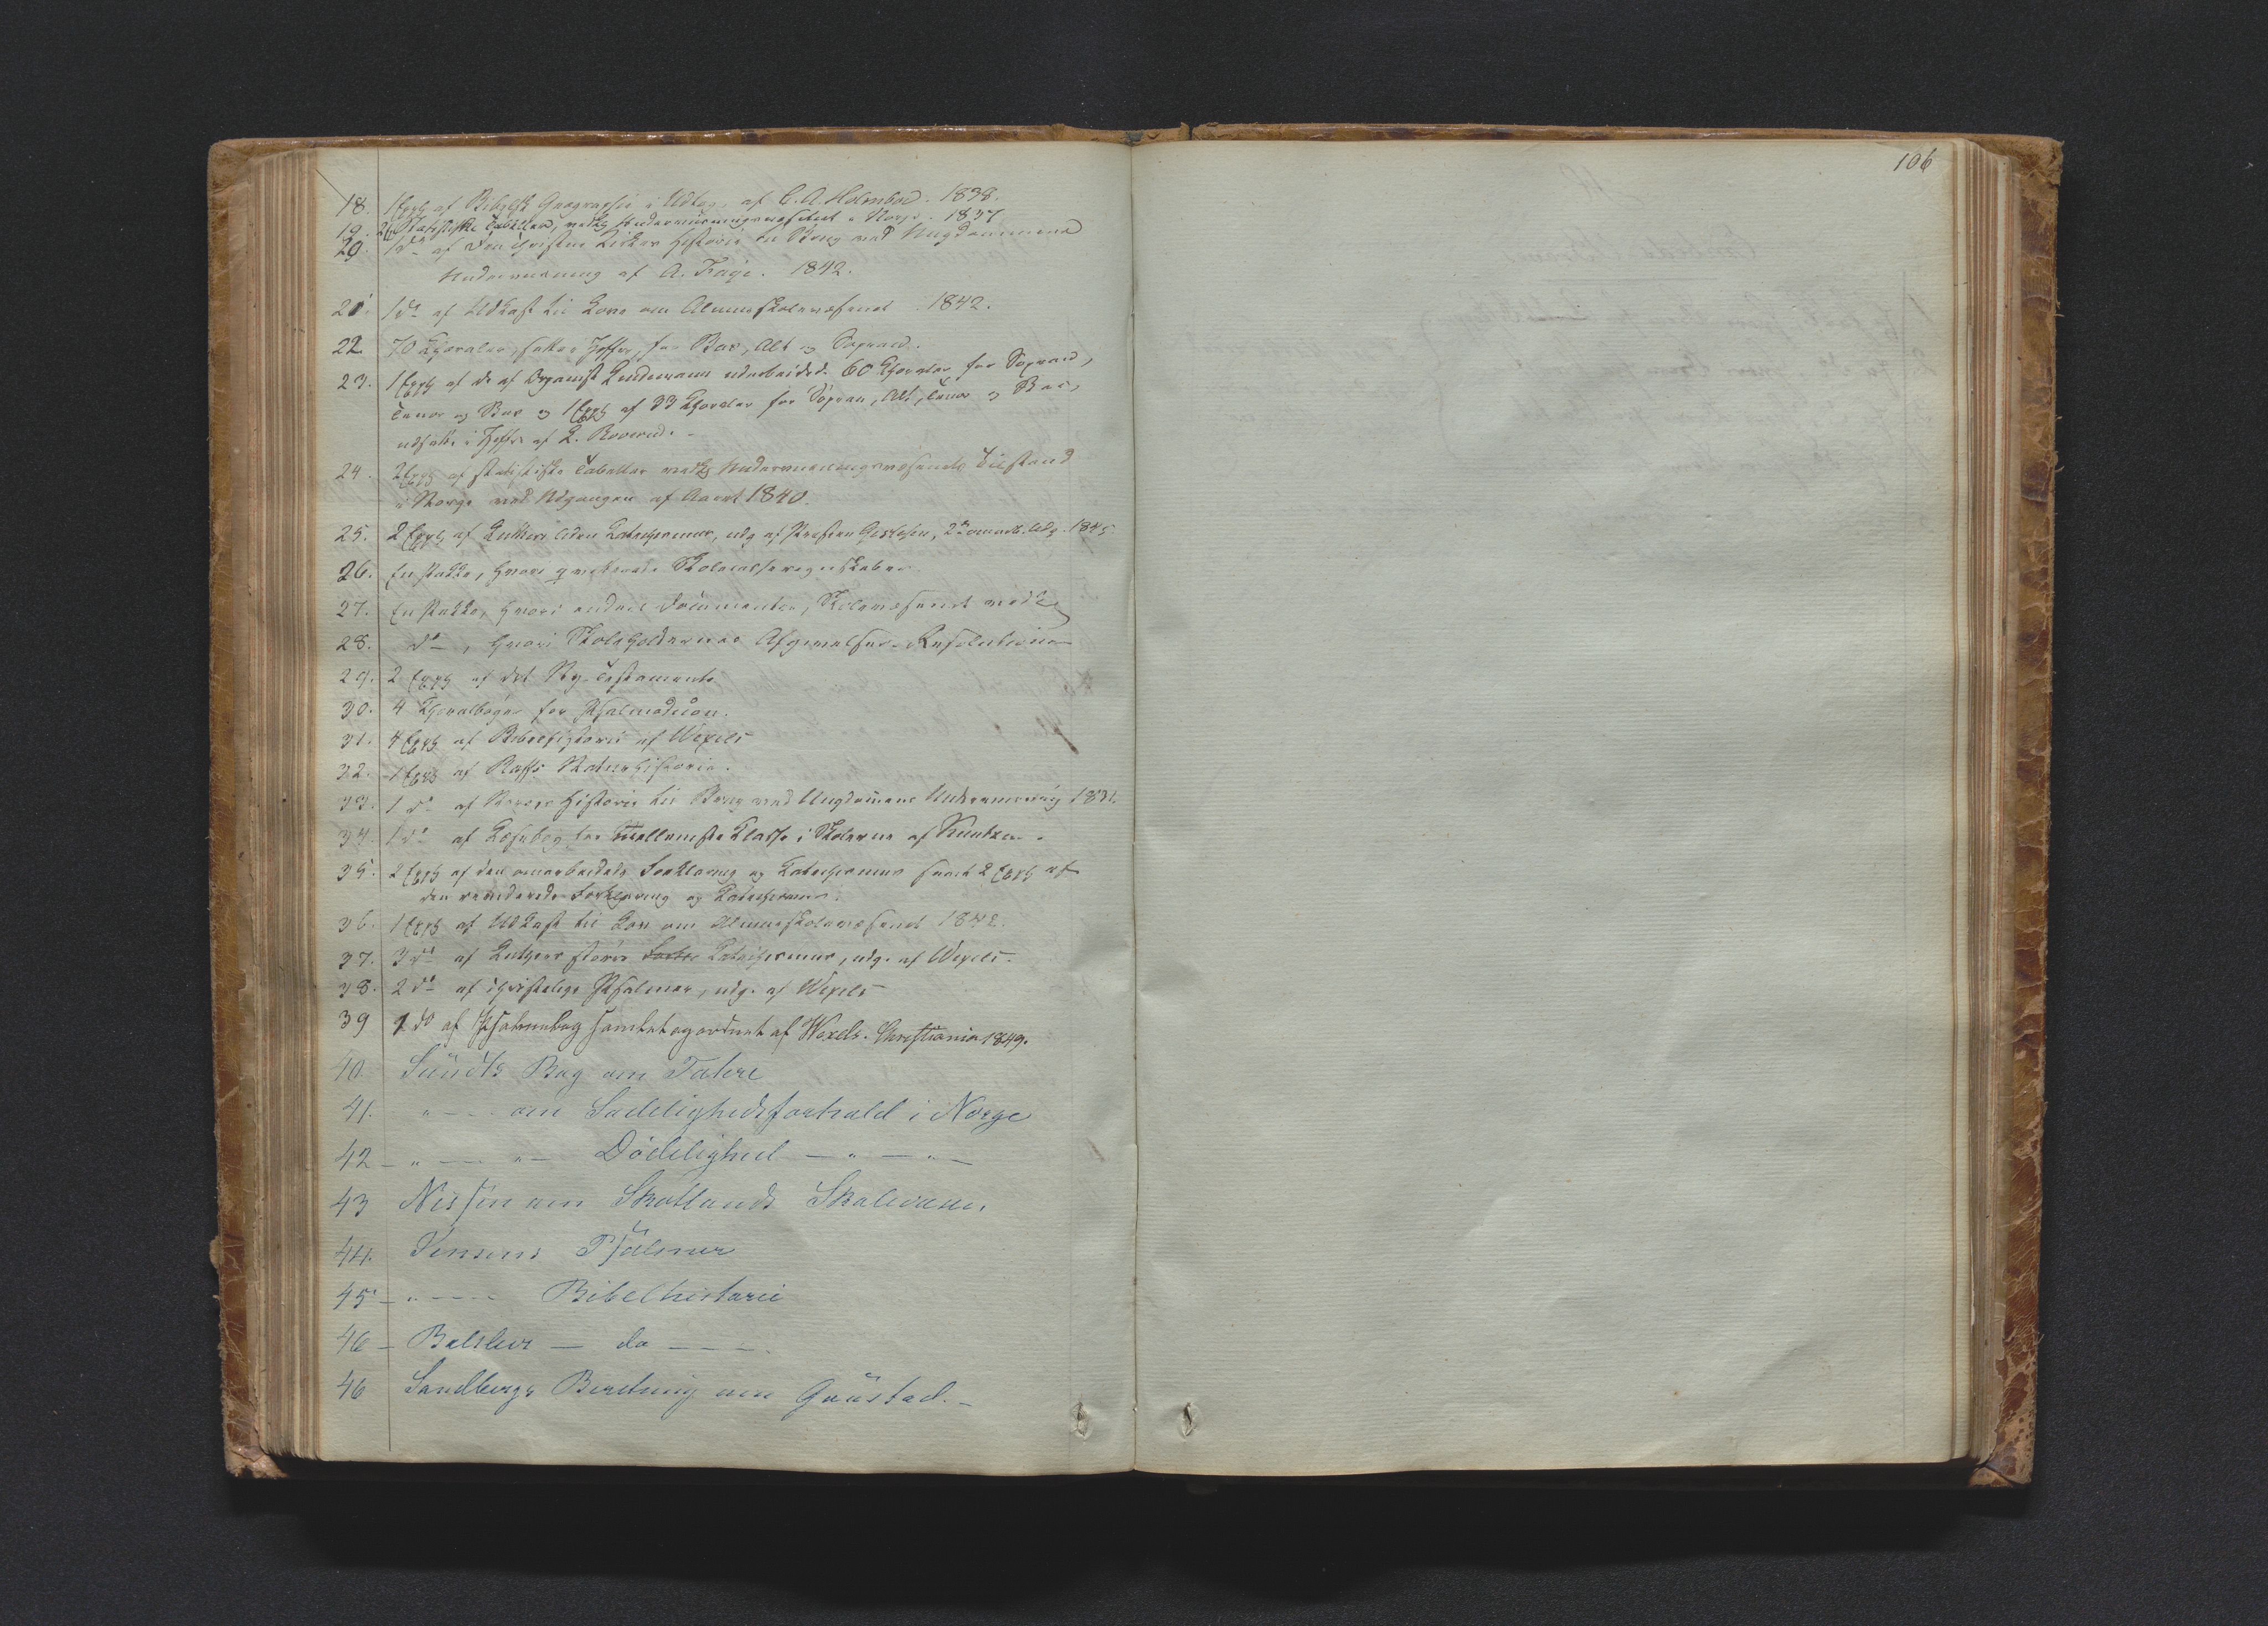 106
18. 1 Expl af Bibelsk Geographie i Udtog, af C. A. Holmboe. 1838.
19. 2 Statistiske Tabeller, vedk Underviisningsvæsenet i Norge. 1837
20. 1 do af Den christne Kirkes Historie til Brug ved Ungdommens
Underviisning af A. Faye. 1842.
21. 1 do af Udkast til Love om Almueskolevæsenet 1842.
22. 70 Choraler, satte i Zifre, for Bas, Alt og Sopran.
23. 1 Expl af de af Organist Lindemann udarbeidede 60 Choraler for Sopran,
Tenor og Bas og 1 Expl af 33 Choraler for Sopran, Alt, Tenor og Bas,
udsatte i Ziffre af L. Roverud.
24. 2 Expl af statistiske Tabeller vedk Underviisningsvæsenets Tilstand
i Norge ved Udgangen af Aaret 1840.
25. 2 Expl af Luthers liden Katechismus, udg af Presten Gislesen, 2den omarb. Udg. 1845
26. En Pakke, hvori qvitterede Skolecasseregnskaber
27. En Pakke, hvori andre Documenter, Skolevæsenet vedk
28. do, hvori Skoleholdernes Afgivelses-Resolutioner
29. 2 Expl af det Ny-Testamente
30. 4 Choralbøger for Psalmodicon.
31. 4 Expl af Bibelhistorie af Wexels
32. 1 Expl af Raffs Naturhistorie.
33. 1 do af Norges Historie til Brug ved Ungdommens Underviisning 1831.
34. 1 do af Læsebog for mellemste Classe i Skolerne af
35. 2 Expl af den omarbeidede Forklaring og Catechismus samt 2 Expl af
den reviderede Forklaring og Catechismus.
36. 1 Expl af Udkast til Lov om Almueskolevæsenet 1842.
37. 3 do af Luthers større Catechismus, udg. af Wexels.
38. 2 do af christelige Psalmer, udg. af Wexels
39 1 do af Psalmebog samlet og ordnet af Wexels. Christiania 1849.
40. Sundts Bog om Tatere
41. " — om Sædelighedsforhold i Norge
42 — " — " — Dödelighed — " — " —
43 Nissen om Skotlands Skolevæsen.
44. Jensens Psalmer
45 — " — Bibelhistorie
46 — Balslevs — do —
46 Sandbergs Beretning om Gaustad. —